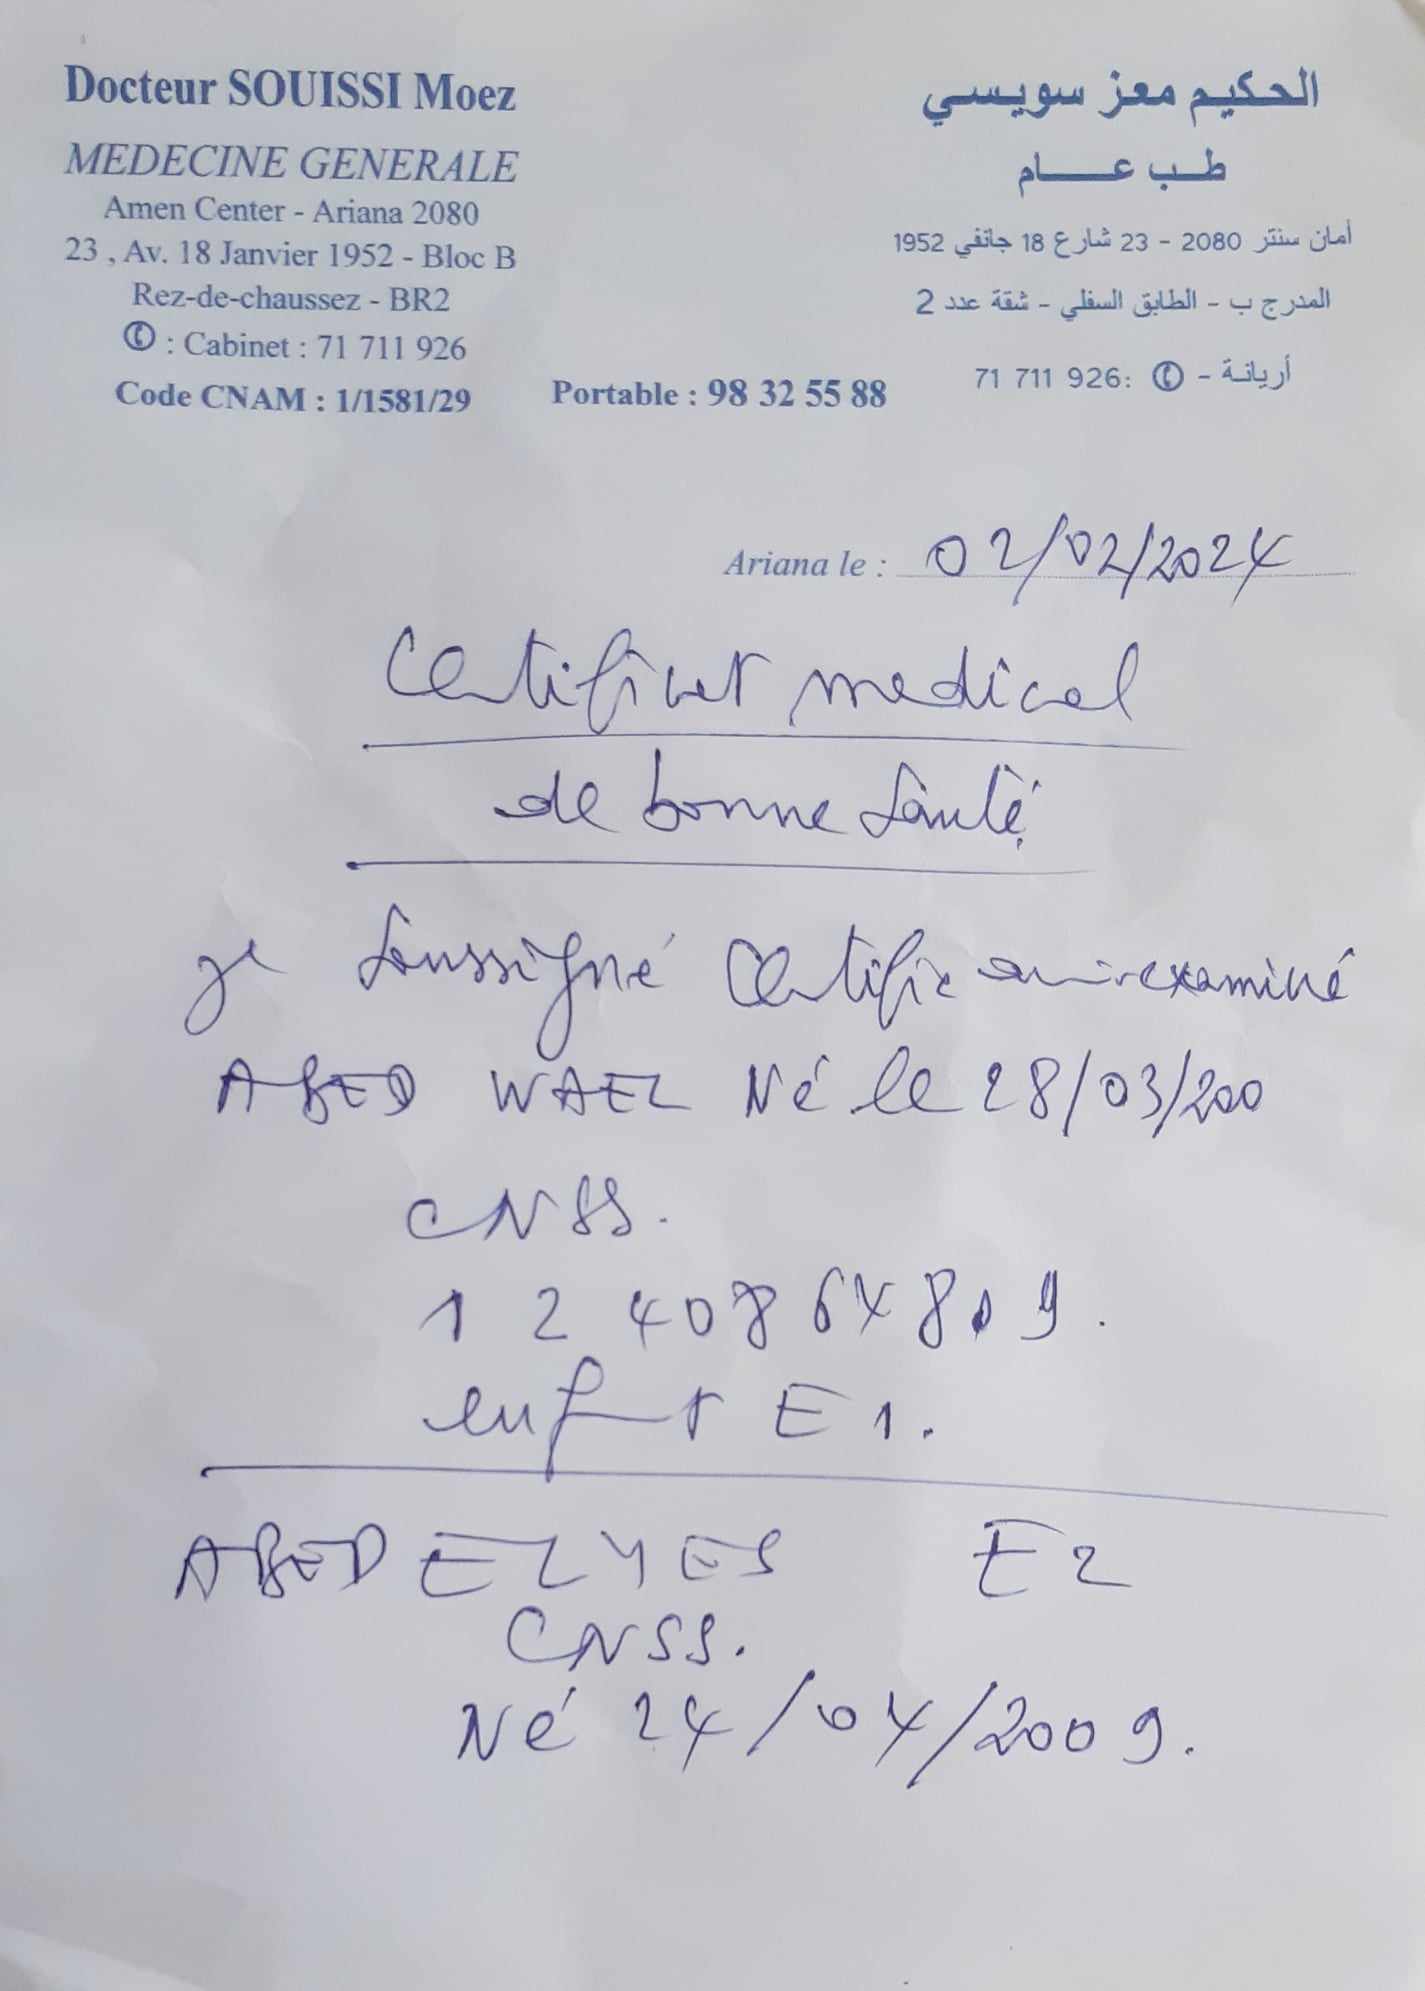 Docteur SOUISSI Moez
MEDECINE GENERALE
Amen Center - Ariana 2080
23 , Av. 18 Janvier 1952 - Bloc B
Rez-de-chaussez - BR2
✆ : Cabinet : 71 711 926
Code CNAM : 1/1581/29
Portable : 98 32 55 88
الحكيم معز سويسي
طب عام
أمان سنتر 2080 - 23 شارع 18 جانفي 1952
المدرج ب - الطابق السفلي - شقة عدد 2
أريانة - ✆ :71 711 926
Ariana le : 02/02/2024
Certificat medical
de bonne santé
je soussigné certifie avoir examiné
ABED WAEL Né le 28/03/200
CNSS.
1 2 4086 64 8 9.
enfant E1.
ABED ELYES E2
CNSS.
Né 24/04/2009.